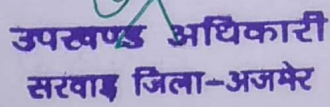 उपखण्ड अधिकारी
सरवाड़ जिला-अजमेर